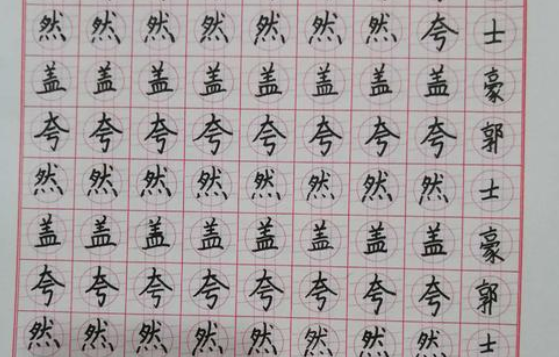 然然然然然然然夸士
盖盖盖盖盖盖盖盖豪
夸夸夸夸夸夸夸夸郭
然然然然然然然然士
盖盖盖盖盖盖盖盖豪
夸夸夸夸夸夸夸夸郭
然然然然然然然然士